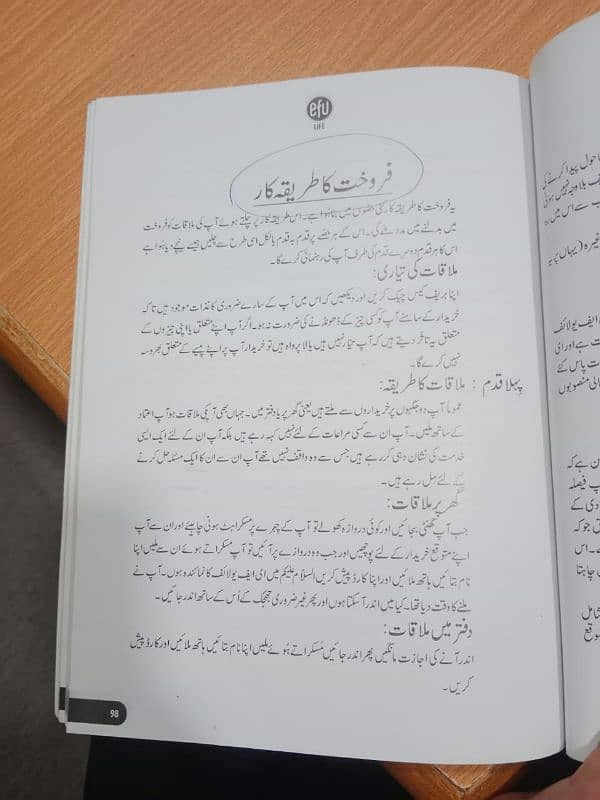 efu
LIFE
فروخت کا طریقہ کار
یہ فروخت کا طریقہ کار کئی حصّوں میں بٹا ہوا ہے۔ اس طریقہ کار پر چلتے ہوئے آپ کی ملاقات کو فروخت
میں بدلنے میں مدد ملے گی۔ اس کے ہر حصّے پر قدم بہ قدم بالکل اسی طرح سے چلیں جیسے نیچے دیا ہوا ہے
اس کا ہر قدم دوسرے قدم کی طرف آپ کی رہنمائی کرے گا۔
ملاقات کی تیاری:
اپنا بریف کیس چیک کریں اور دیکھیں کہ اس میں آپ کے سارے ضروری کاغذات موجود ہیں تاکہ
خریدار کے سامنے آپ کو کسی چیز کے ڈھونڈنے کی ضرورت نہ ہو۔ اگر آپ اپنے متعلق یا اپنی چیزوں کے
متعلق یہ تاثر دیتے ہیں کہ آپ تیار نہیں ہیں یا لاپرواہ ہیں تو خریدار آپ پر اپنے پیسے کے متعلق بھروسہ
نہیں کرے گا۔
پہلا قدم : ملاقات کا طریقہ:
عموماً آپ دو جگہوں پر خریداروں سے ملتے ہیں یعنی گھر پر یا دفتر میں۔ جہاں بھی آپکی ملاقات ہو آپ اعتماد
کے ساتھ ملیں۔ آپ ان سے کسی مراعات کے لئے نہیں کہہ رہے ہیں بلکہ آپ ان کے لئے ایک ایسی
خدمت کی نشان دہی کر رہے ہیں جس سے وہ واقف نہیں تھے آپ ان سے ان کا ایک مسئلہ حل کرنے
کے لئے مل رہے ہیں۔
گھر پر ملاقات:
جب آپ گھنٹی بجائیں اور کوئی دروازہ کھولے تو آپ کے چہرے پر مسکراہٹ ہونی چاہئے اور ان سے آپ
اپنے متوقع خریدار کے لئے پوچھیں اور جب وہ دروازے پر آئیں تو آپ مسکراتے ہوئے ان سے ملیں اپنا
نام بتائیں ہاتھ ملائیں اور اپنا کارڈ پیش کریں السلام علیکم میں ای ایف یو لائف کا نمائندہ ہوں۔ آپ نے
ملنے کا وقت دیا تھا۔ کیا میں اندر آ سکتا ہوں اور پھر غیر ضروری جھجک کے اُس کے ساتھ اندر جائیں۔
دفتر میں ملاقات:
اندر آنے کی اجازت مانگیں پھر اندر جائیں مُسکراتے ہوئے ملیں اپنا نام بتائیں ہاتھ ملائیں اور کارڈ پیش
کریں۔
98